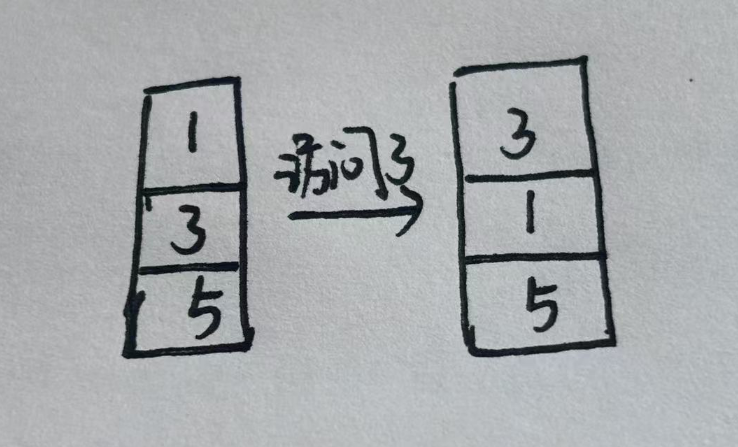 1
3
5
访问3
3
1
5